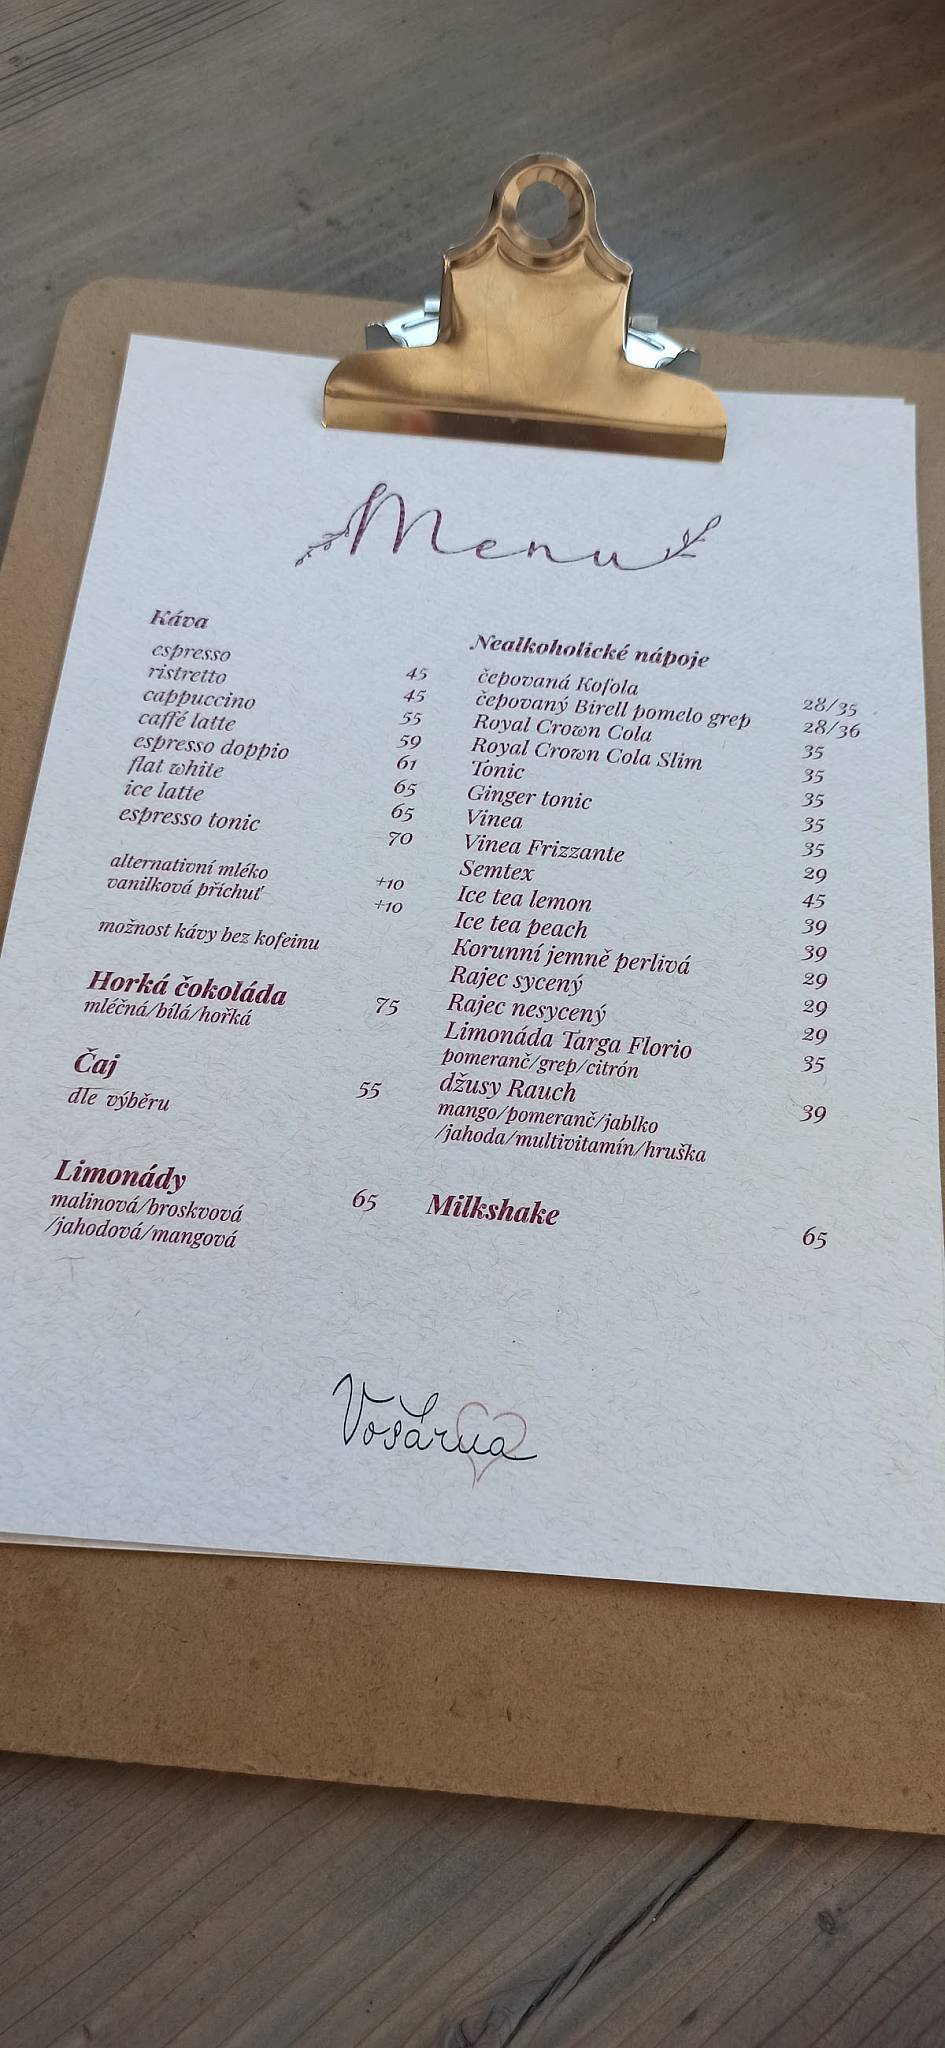 Menu
Káva
espresso 45
ristretto 45
cappuccino 55
caffé latte 59
espresso doppio 61
flat white 65
ice latte 65
espresso tonic 70
alternativní mléko +10
vanilková příchuť +10
možnost kávy bez kofeinu
Horká čokoláda 75
mléčná/bílá/hořká
Čaj 55
dle výběru
Limonády 65
malinová/broskvová
/jahodová/mangová
Nealkoholické nápoje
čepovaná Kofola 28/35
čepovaný Birell pomelo grep 28/36
Royal Crown Cola 35
Royal Crown Cola Slim 35
Tonic 35
Ginger tonic 35
Vinea 35
Vinea Frizzante 29
Semtex 45
Ice tea lemon 39
Ice tea peach 39
Korunní jemně perlivá 29
Rajec sycený 29
Rajec nesycený 29
Limonáda Targa Florio 35
pomeranč/grep/citrón
džusy Rauch 39
mango/pomeranč/jablko
/jahoda/multivitamín/hruška
Milkshake 65
Vošárna